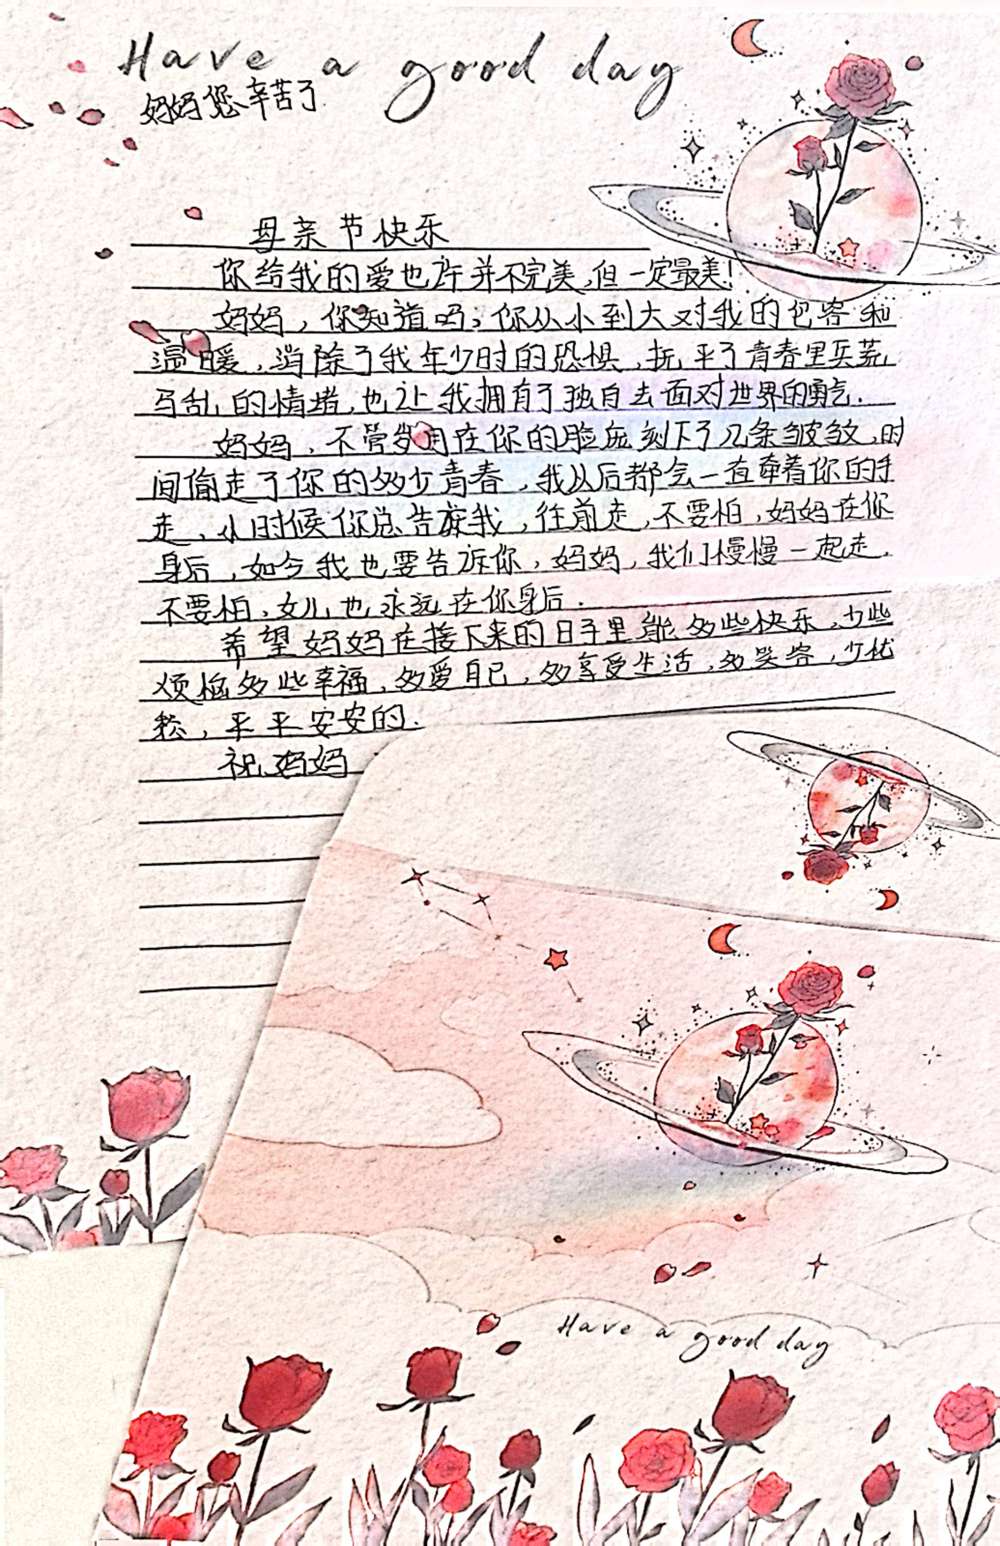 Have a good day
妈妈您辛苦了
母亲节快乐
你给我的爱也许并不完美,但一定最美!
妈妈,你知道吗,你从小到大对我的包容和
温暖,消除了我年少时的恐惧,抚平了青春里兵荒
马乱的情绪,也让我拥有了独自去面对世界的勇气.
妈妈,不管岁月在你的脸庞刻下了几条皱纹,时
间偷走了你的多少青春,我从后都会一直牵着你的手
走,小时候你总告诉我,往前走,不要怕,妈妈在你
身后,如今我也要告诉你,妈妈,我们慢慢一起走.
不要怕,女儿也永远在你身后.
希望妈妈在接下来的日子里能多些快乐,少些
烦恼多些幸福,多爱自己,多享受生活,多笑容,少忧
愁,平平安安的.
祝妈妈
Have a good day